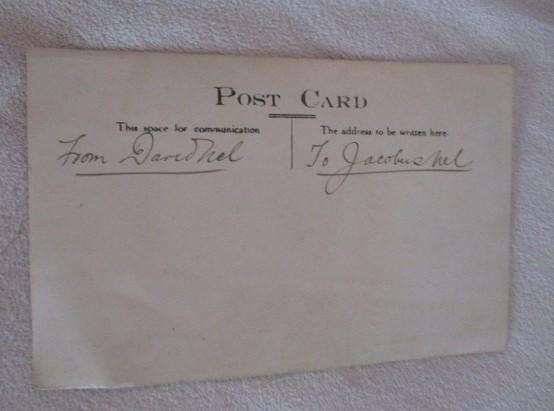 POST CARD
This space for communication
The address to be written here.
From David Nel
To Jacobus Nel